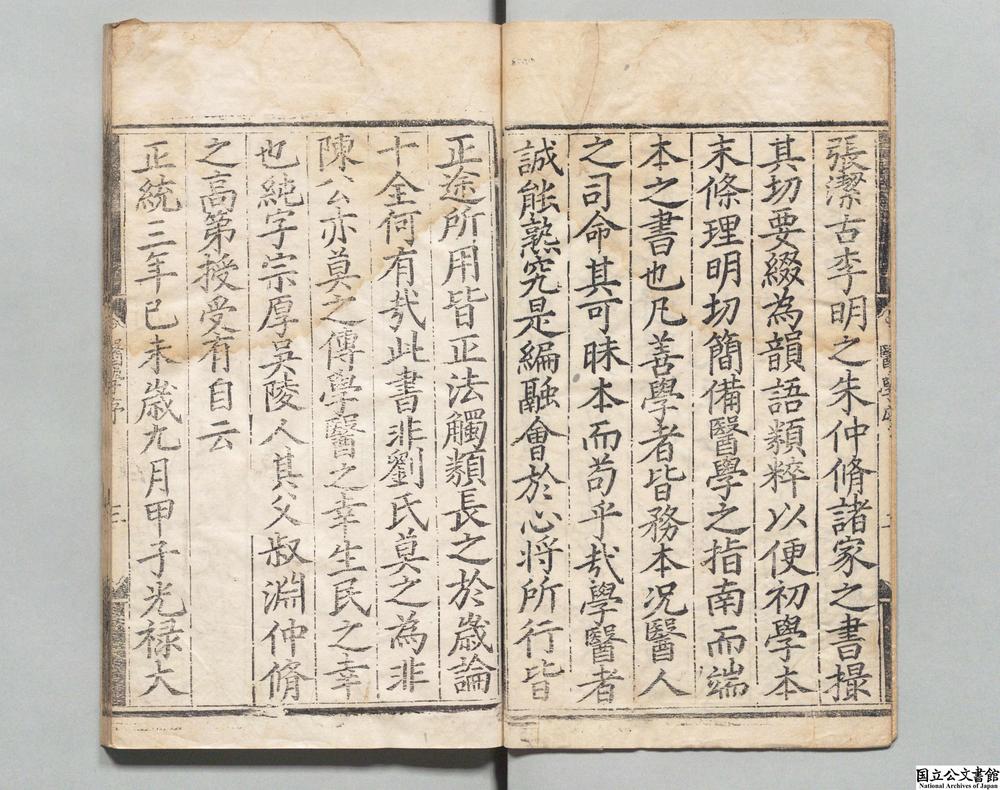 張潔古李明之朱仲脩諸家之書撮
其切要綴為韻語類粹以便初學本
末條理明切簡備醫學之指南而端
本之書也凡善學者皆務本况醫人
之司命其可昧本而苟乎㢤學醫者
誠能熟究是編融會於心将所行皆
正途所用皆正法觸類長之於歲論
十全何有㢤此書非劉氏莫之為非
陳公亦莫之傳學醫之幸生民之幸
也純字宗厚吳陵人其父叔淵仲脩
之高第授受有自云
正統三年已未歲九月甲子光禄大
醫學序
国立公文書館
National Archives of Japan